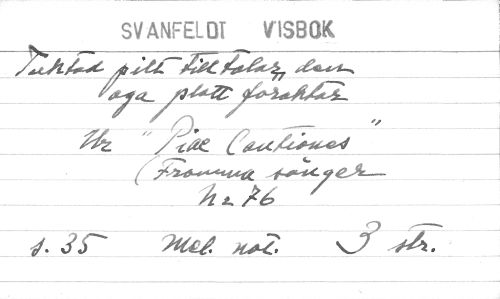 SVANFELDT VISBOK
Tuktad pilt till talar, den
aga platt föraktar
Ur "Piae Cantiones"
(Fromma sånger
Nr 76
s. 35 Mel. not. 3 str.